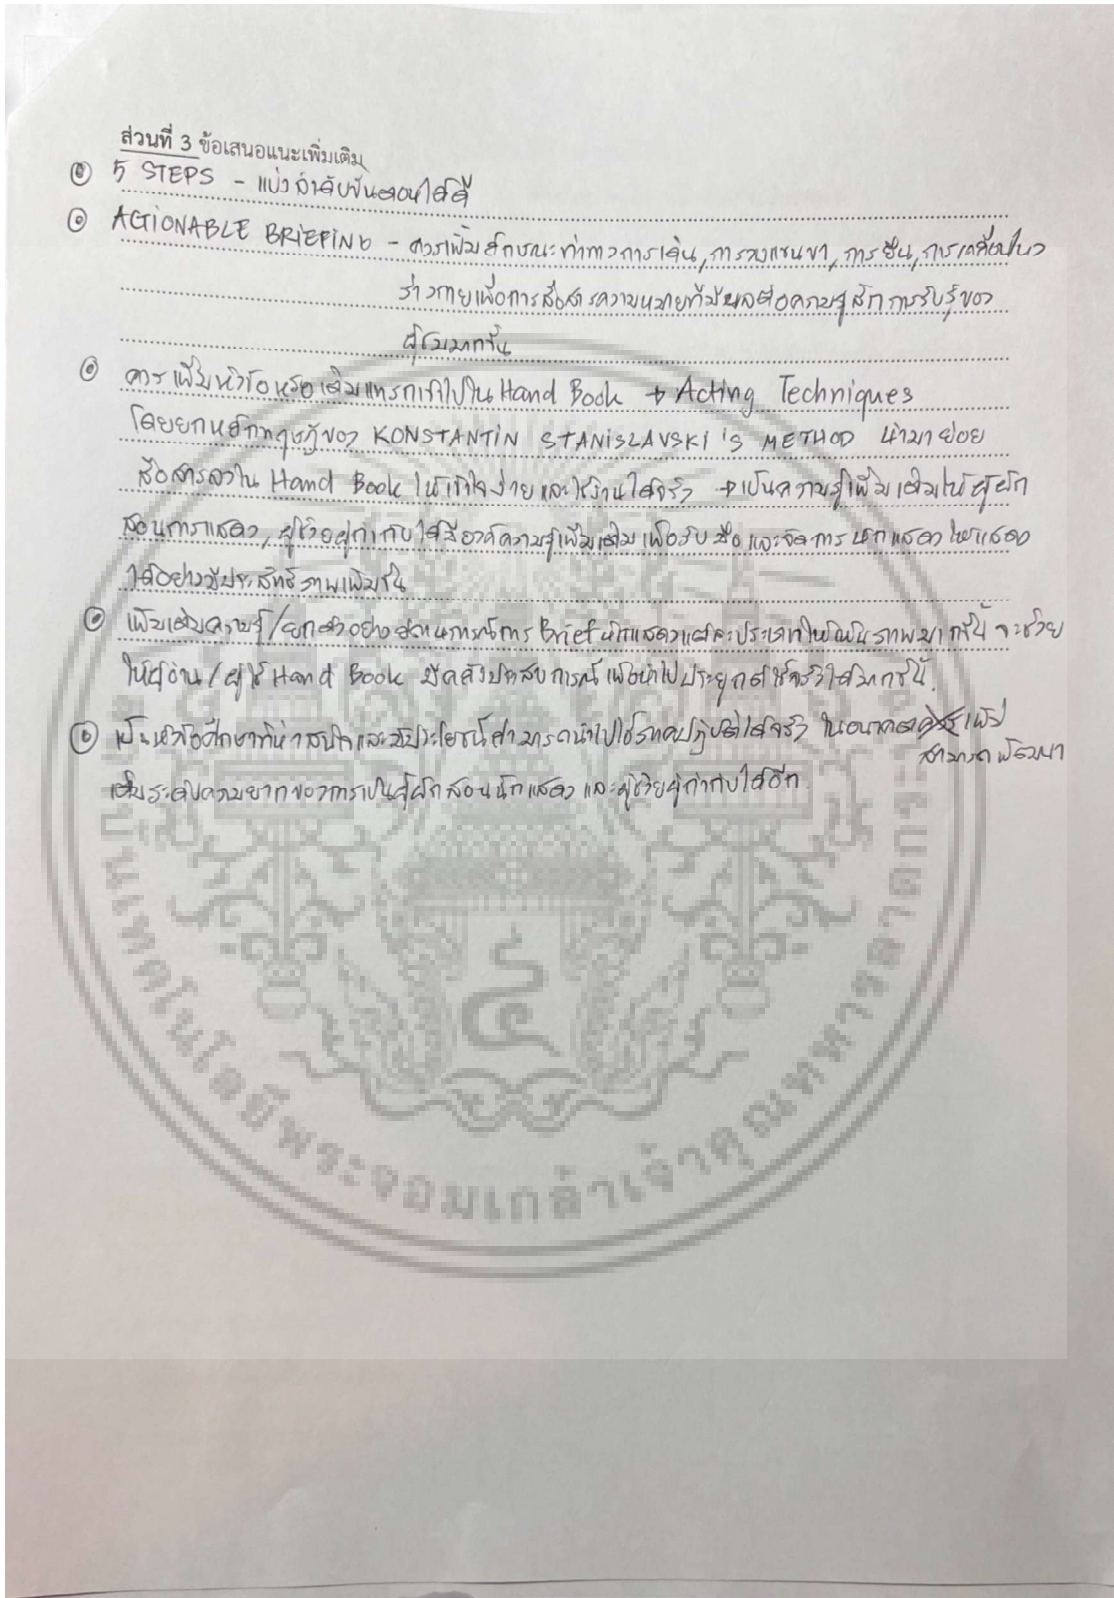 ส่วนที่ 3 ข้อเสนอแนะเพิ่มเติม
5 STEPS - แบ่งลำดับขั้นตอนได้ดี
ACTIONABLE BRIEFING - ควรเพิ่มลักษณะท่าทางการเดิน, การวางแขนขา, การยืน, การเคลื่อนไหว
ร่างกายเพื่อการสื่อสารความหมายที่มีผลต่อความรู้สึกการรับรู้ของ
ผู้ชมมากขึ้น
ควรเพิ่มหัวข้อหรือเติมแทรกเข้าไปใน Hand Book → Acting Techniques
โดยยกหลักทฤษฎีของ KONSTANTIN STANISLAVSKI'S METHOD นำมาย่อย
สื่อสารลงใน Hand Book ให้เข้าใจง่ายและใช้งานได้จริง → เป็นความรู้เพิ่มเติมให้ผู้ฝึก
สอนการแสดง, ผู้ช่วยผู้กำกับได้มีองค์ความรู้เพิ่มเติม เพื่อรับมือและจัดการนักแสดงให้แสดง
ได้อย่างมีประสิทธิภาพเพิ่มขึ้น
เพิ่มเติมความรู้/ยกตัวอย่างสถานการณ์การ Brief นักแสดงแต่ละประเภทให้เห็นภาพมากขึ้น จะช่วย
ให้ผู้อ่าน/ผู้ใช้ Hand Book มีคลังประสบการณ์เพื่อนำไปประยุกต์ใช้จริงได้มากขึ้น.
เป็นหัวข้อศึกษาที่น่าสนใจและมีประโยชน์สามารถนำไปใช้ภาคปฏิบัติได้จริง ในอนาคต เพิ่ม
สามารถพัฒนา
ระดับความยากของการเป็นผู้ฝึกสอนนักแสดง และผู้ช่วยผู้กำกับได้อีก
สถาบันเทคโนโลยีพระจอมเกล้าเจ้าคุณทหารลาดกระบัง